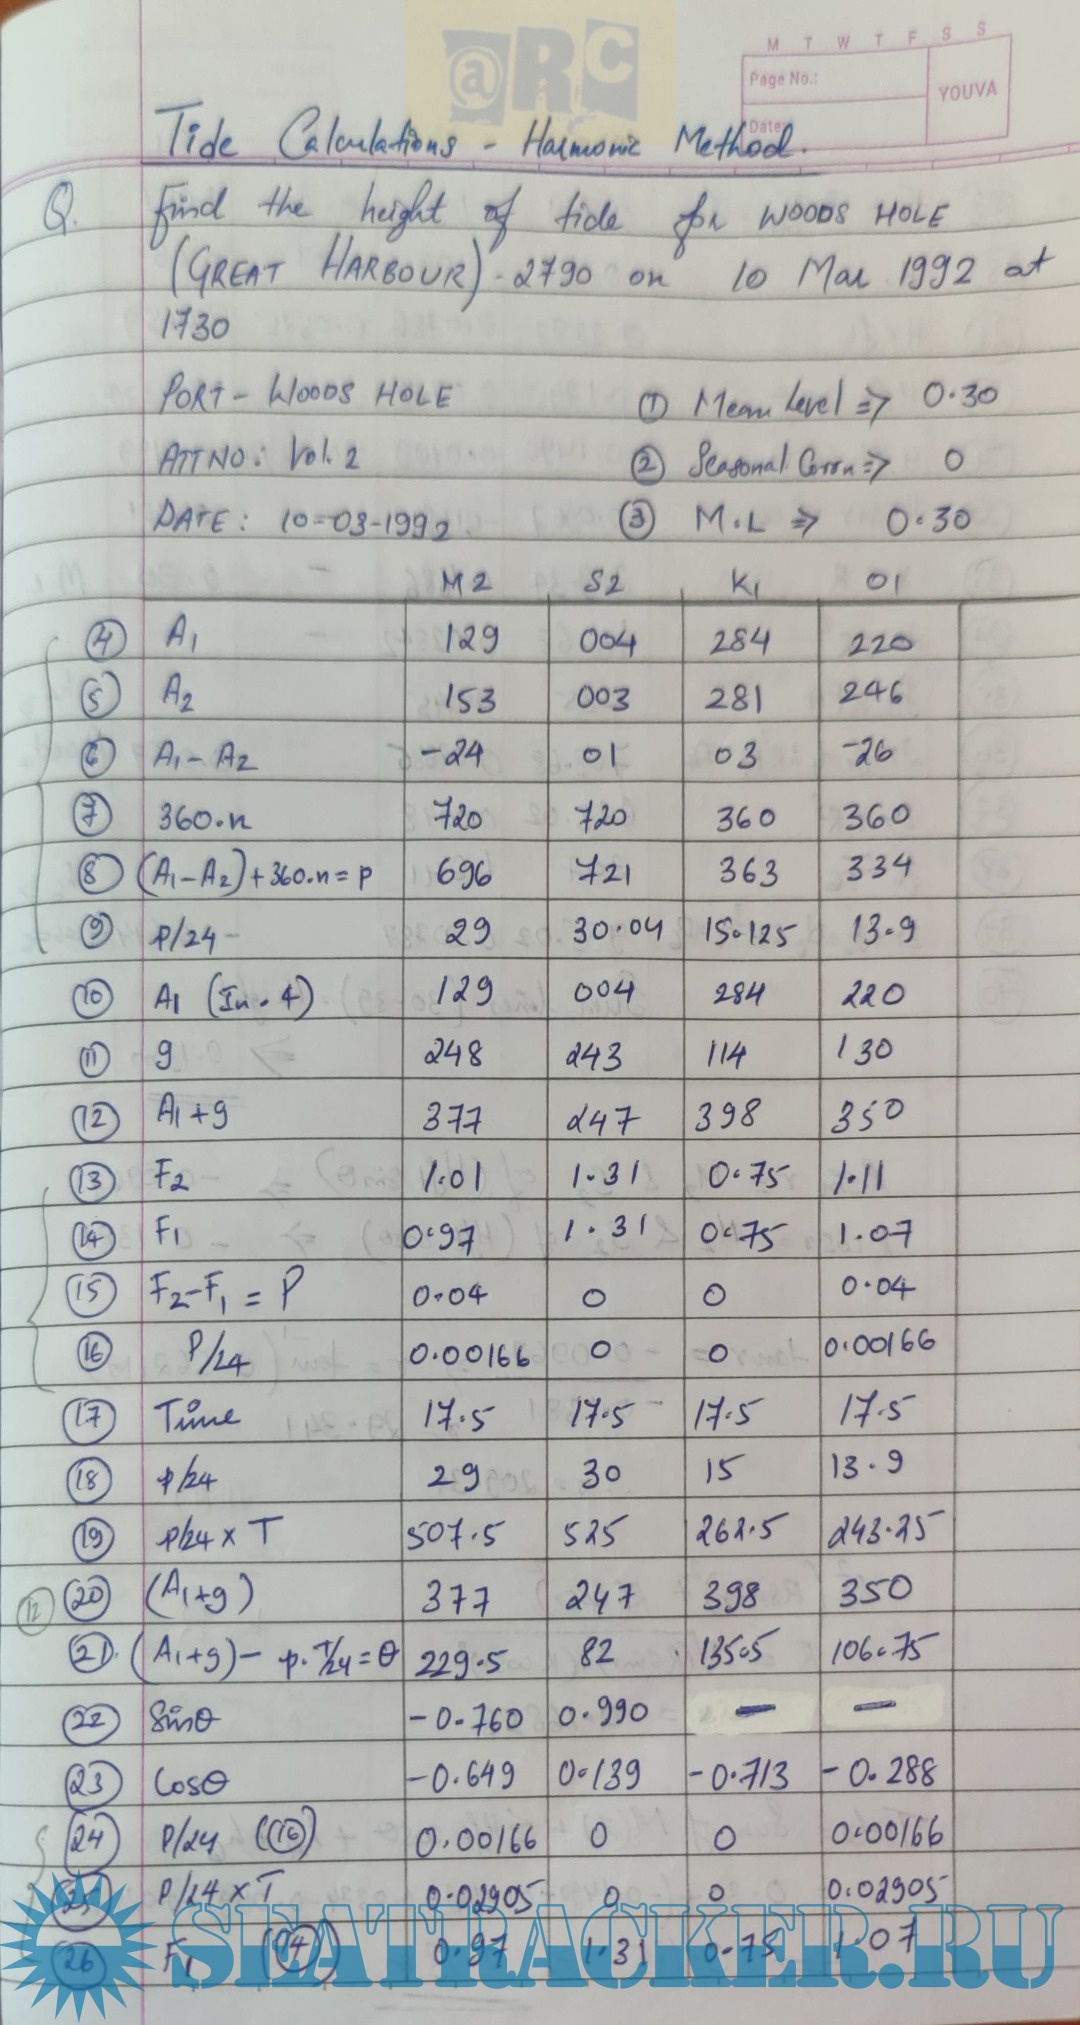 @RC
M T W T F S S
Page No.:
YOUVA
Date:
Tide Calculations - Harmonic Method.
Q. Find the height of tide for WOODS HOLE
(GREAT HARBOUR) - 2790 on 10 Mar 1992 at
1730
PORT - WOODS HOLE ① Mean Level => 0.30
ATT NO: Vol. 2 ② Seasonal Corrn => 0
DATE: 10-03-1992 ③ M.L => 0.30
M2 S2 K1 O1
④ A1 129 004 284 220
⑤ A2 153 003 281 246
⑥ A1 - A2 -24 01 03 -26
⑦ 360.n 720 720 360 360
⑧ (A1-A2)+360.n = p 696 721 363 334
⑨ p/24 - 29 30.04 15.125 13.9
⑩ A1 (In. 4) 129 004 284 220
⑪ g 248 243 114 130
⑫ A1+g 377 247 398 350
⑬ F2 1.01 1.31 0.75 1.11
⑭ F1 0.97 1.31 0.75 1.07
⑮ F2-F1 = P 0.04 0 0 0.04
⑯ P/24 0.00166 0 0 0.00166
⑰ Time 17.5 17.5 17.5 17.5
⑱ p/24 29 30 15 13.9
⑲ p/24 x T 507.5 525 262.5 243.25
⑫ ⑳ (A1+g) 377 247 398 350
㉑. (A1+g) - p.T/24 = θ 229.5 82 135.5 106.75
㉒ Sinθ -0.760 0.990 - -
㉓ Cosθ -0.649 0.139 -0.713 -0.288
㉔ P/24 (⑯) 0.00166 0 0 0.00166
㉕ P/24 x T 0.02905 0 0 0.02905
㉖ F1 (⑭) 0.97 1.31 0.75 1.07
SEATRACKER.RU